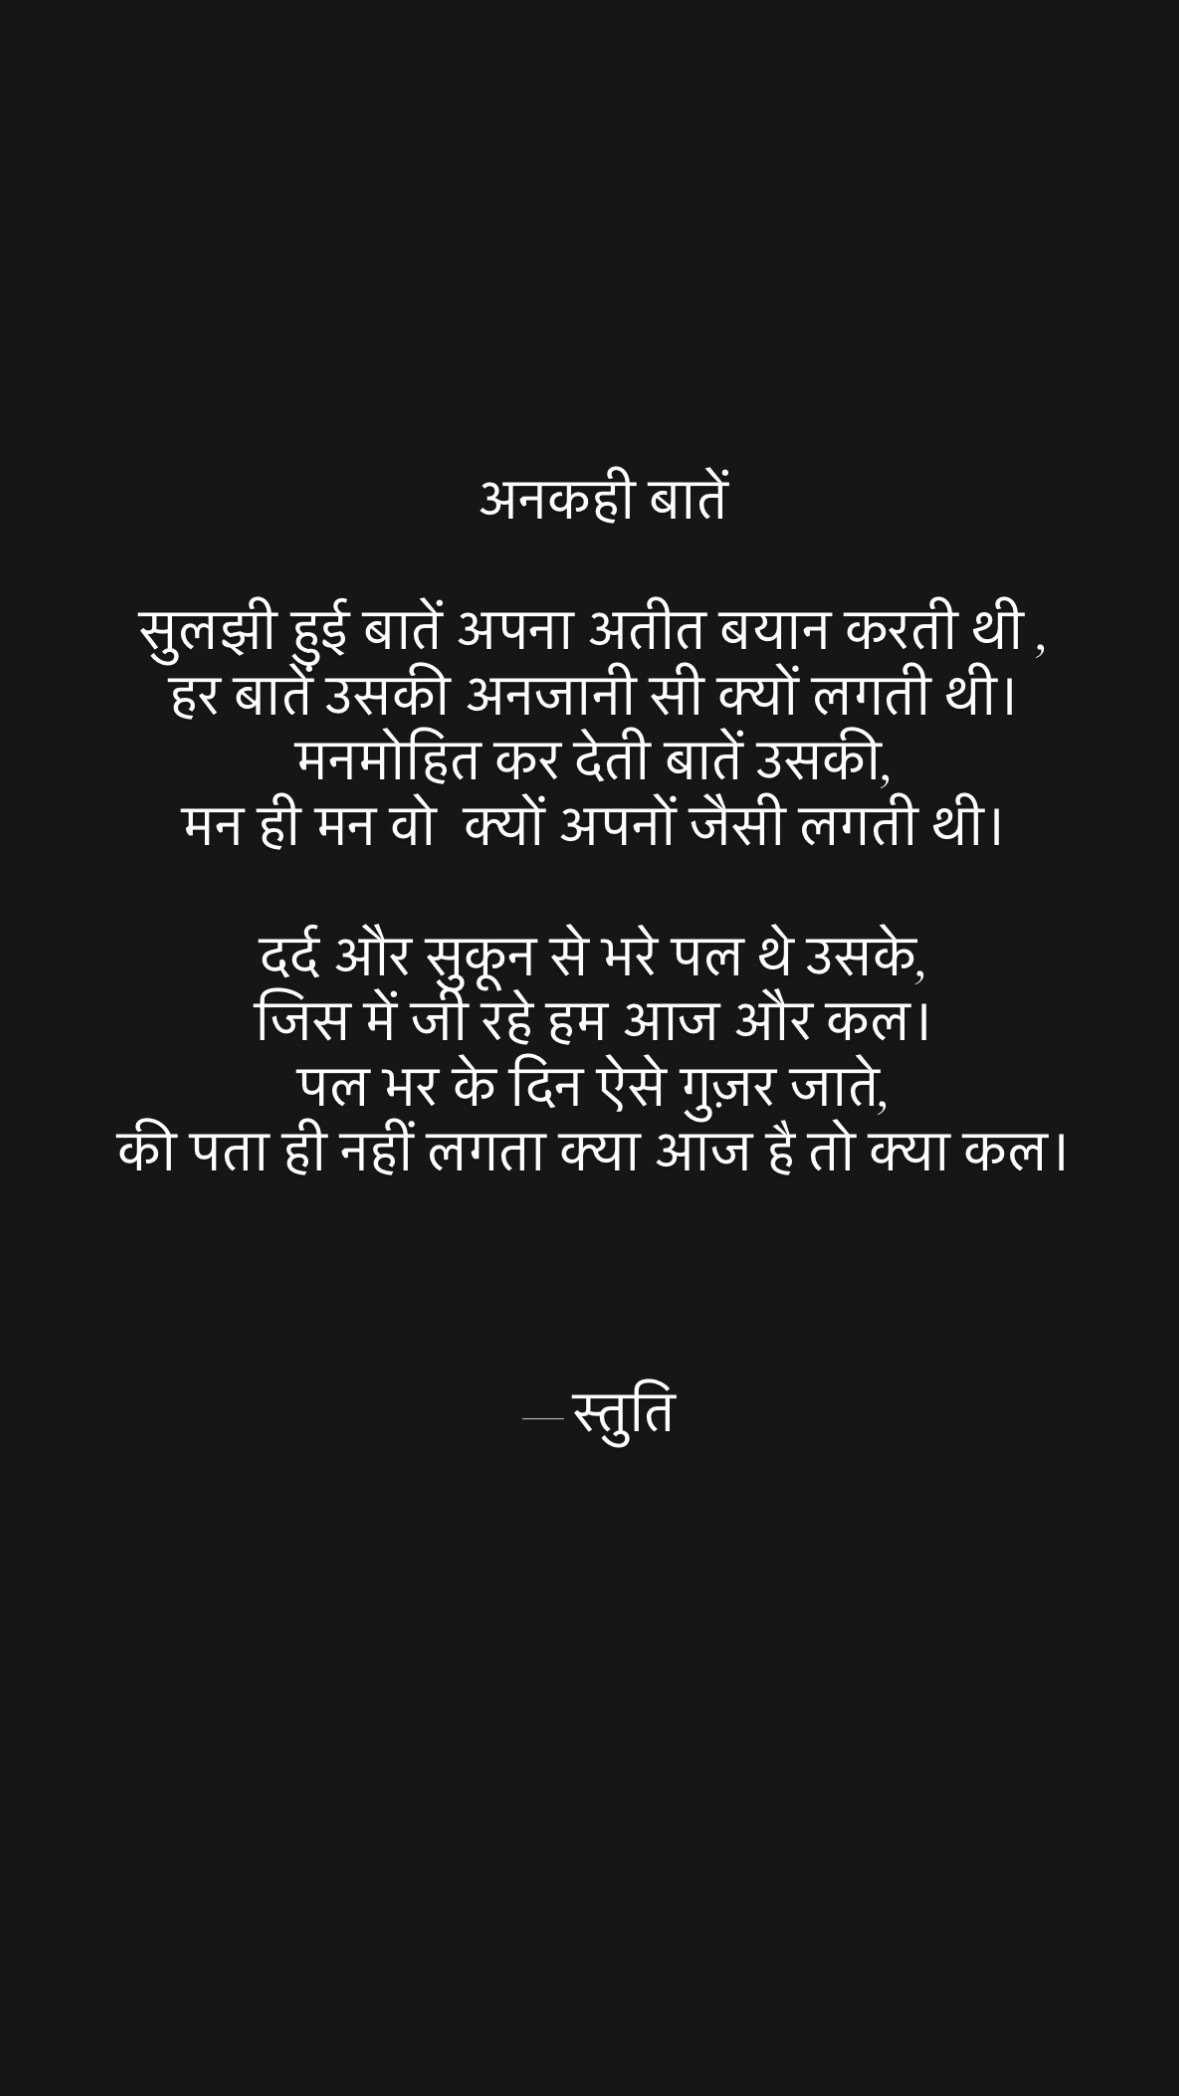 अनकही बातें
सुलझी हुई बातें अपना अतीत बयान करती थी ,
हर बातें उसकी अनजानी सी क्यों लगती थी।
मनमोहित कर देती बातें उसकी,
मन ही मन वो  क्यों अपनों जैसी लगती थी।
दर्द और सुकून से भरे पल थे उसके,
जिस में जी रहे हम आज और कल।
पल भर के दिन ऐसे गुज़र जाते,
की पता ही नहीं लगता क्या आज है तो क्या कल।
— स्तुति